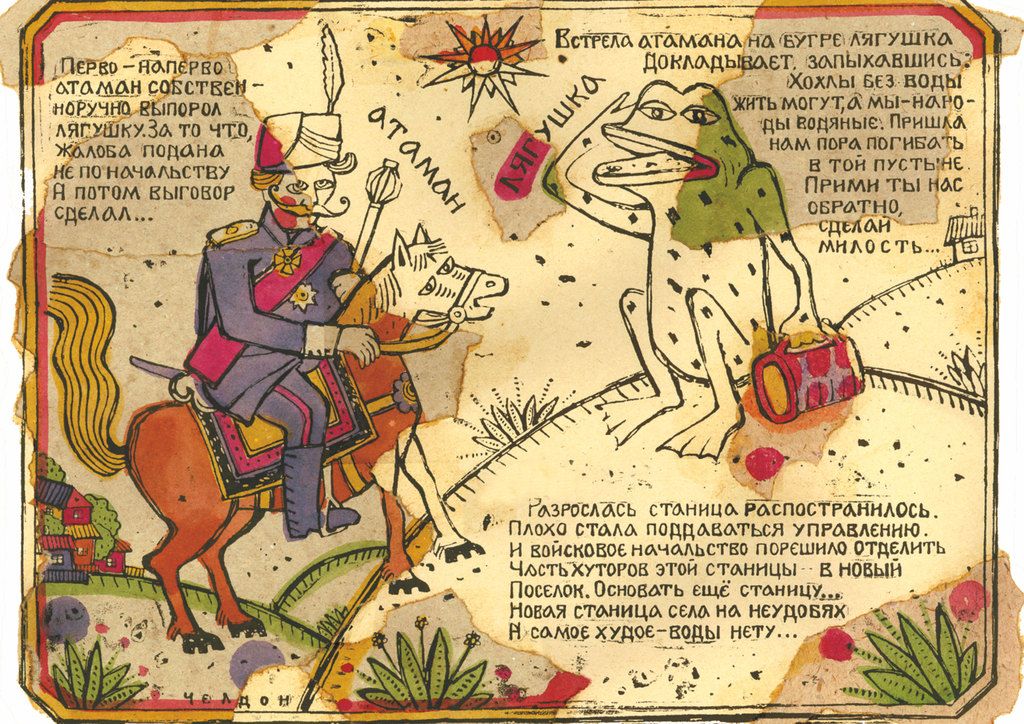 Перво-наперво
атаман собствен-
норучно выпорол
лягушку. За то что,
жалоба подана
не по начальству
А потом выговор
сделал...
атаман
лягушка
Встрела атамана на бугре лягушка
Докладывает, запыхавшись:
Хохлы без воды
жить могут, а мы-наро-
ды водяные. Пришла
нам пора погибать
в той пустыне
Прими ты нас
обратно,
сделай
милость...
Разрослась станица распостранилось.
Плохо стала поддаваться управлению.
И войсковое начальство порешило отделить
Часть хуторов этой станицы в новый
Поселок. Основать ещё станицу...
Новая станица села на неудобях
И самое худое-воды нету...
Челдон